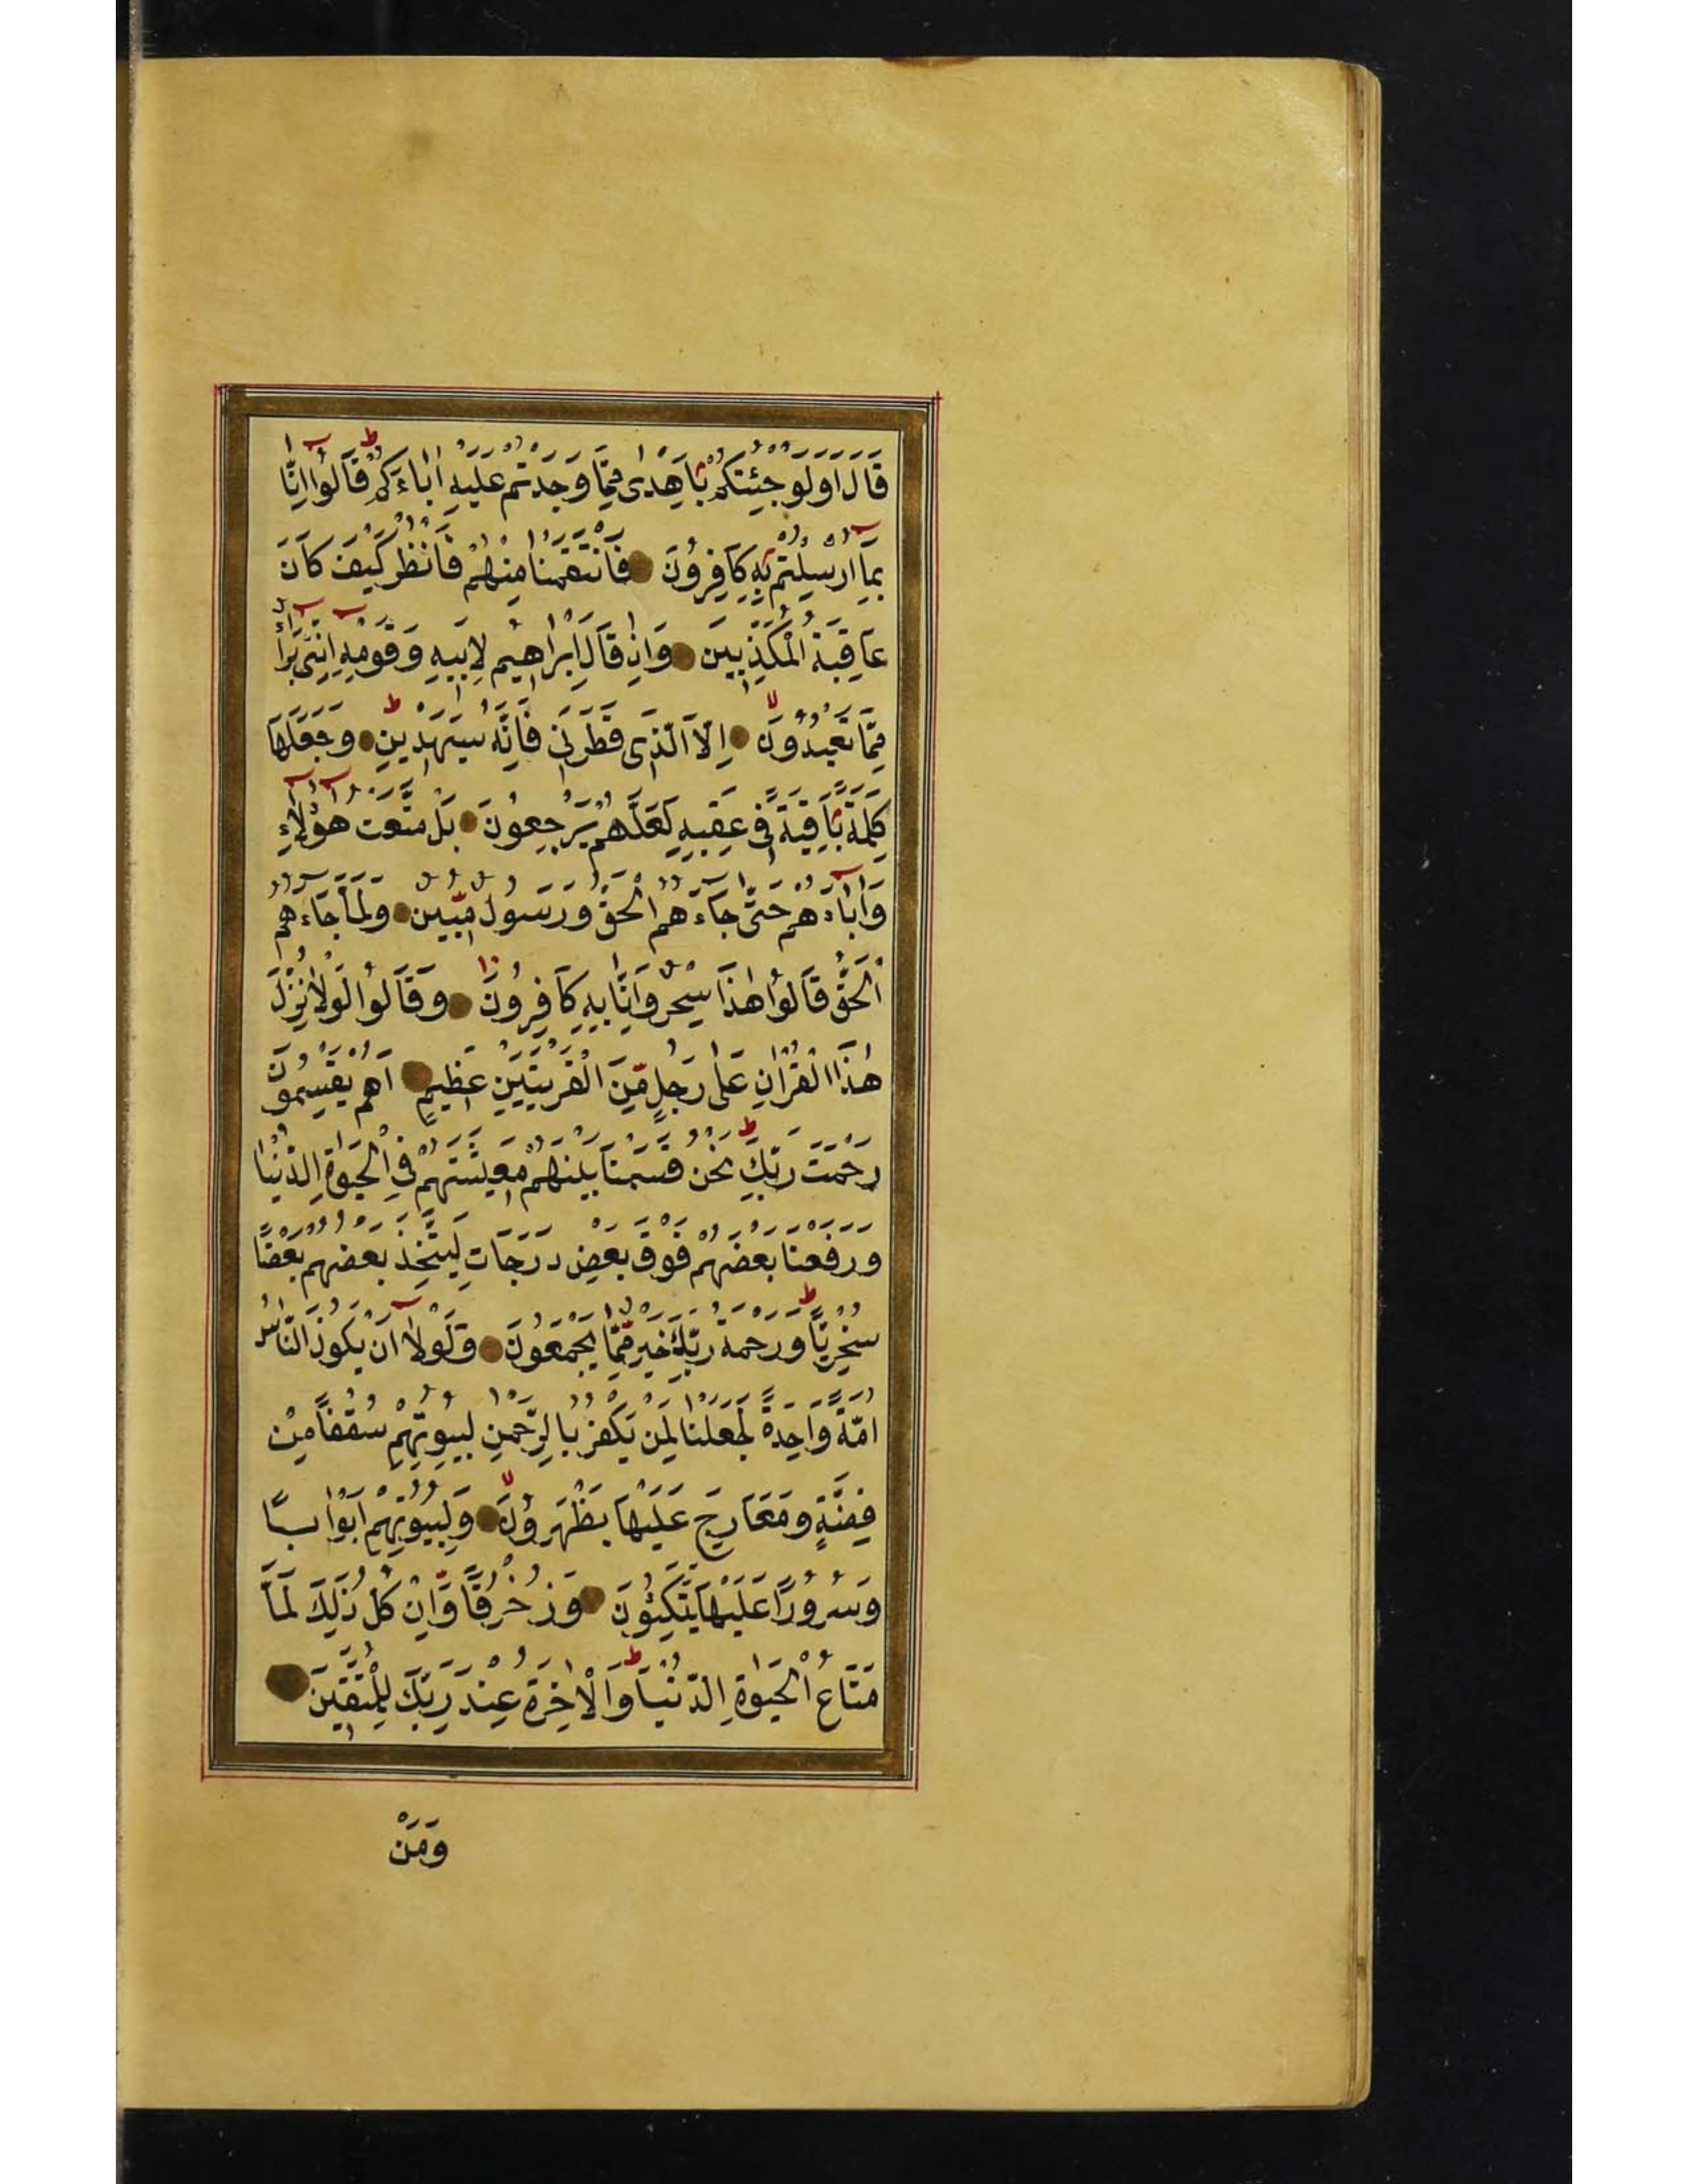 قَالَ اَوَلَوْ جِئْتُكُمْ بِاَهْدٰى مِمَّا وَجَدْتُمْ عَلَيْهِ اٰبَاءَكُمْ قَالُوا اِنَّا
بِمَا اُرْسِلْتُمْ بِهِ كَافِرُونَ فَانْتَقَمْنَا مِنْهُمْ فَانْظُرْ كَيْفَ كَانَ
عَاقِبَةُ الْمُكَذِّبِينَ وَاِذْ قَالَ اِبْرٰاهِيمُ لِاَبِيهِ وَقَوْمِهِ اِنَّنِى بَرَاءٌ
مِمَّا تَعْبُدُونَ اِلَّا الَّذِى فَطَرَنِى فَاِنَّهُ سَيَهْدِينِ وَجَعَلَهَا
كَلِمَةً بَاقِيَةً فِى عَقِبِهِ لَعَلَّهُمْ يَرْجِعُونَ بَلْ مَتَّعْتُ هٰؤُلَاءِ
وَاٰبَاءَهُمْ حَتّٰى جَاءَهُمُ الْحَقُّ وَرَسُولٌ مُبِينٌ وَلَمَّا جَاءَهُمُ
الْحَقُّ قَالُوا هٰذَا سِحْرٌ وَاِنَّا بِهِ كَافِرُونَ وَقَالُوا لَوْلَا نُزِّلَ
هٰذَا الْقُرْاٰنُ عَلٰى رَجُلٍ مِنَ الْقَرْيَتَيْنِ عَظِيمٍ اَهُمْ يَقْسِمُونَ
رَحْمَتَ رَبِّكَ نَحْنُ قَسَمْنَا بَيْنَهُمْ مَعِيشَتَهُمْ فِى الْحَيٰوةِ الدُّنْيَا
وَرَفَعْنَا بَعْضَهُمْ فَوْقَ بَعْضٍ دَرَجَاتٍ لِيَتَّخِذَ بَعْضُهُمْ بَعْضًا
سُخْرِيًّا وَرَحْمَةُ رَبِّكَ خَيْرٌ مِمَّا يَجْمَعُونَ وَلَوْلَا اَنْ يَكُونَ النَّاسُ
اُمَّةً وَاحِدَةً لَجَعَلْنَا لِمَنْ يَكْفُرُ بِالرَّحْمٰنِ لِبُيُوتِهِمْ سُقُفًا مِنْ
فِضَّةٍ وَمَعَارِجَ عَلَيْهَا يَظْهَرُونَ وَلِبُيُوتِهِمْ اَبْوَابًا
وَسُرُورًا عَلَيْهَا يَتَّكِئُونَ وَزُخْرُفًا وَاِنْ كُلُّ ذٰلِكَ لَمَّا
مَتَاعُ الْحَيٰوةِ الدُّنْيَا وَالْاٰخِرَةُ عِنْدَ رَبِّكَ لِلْمُتَّقِينَ
وَمَنْ